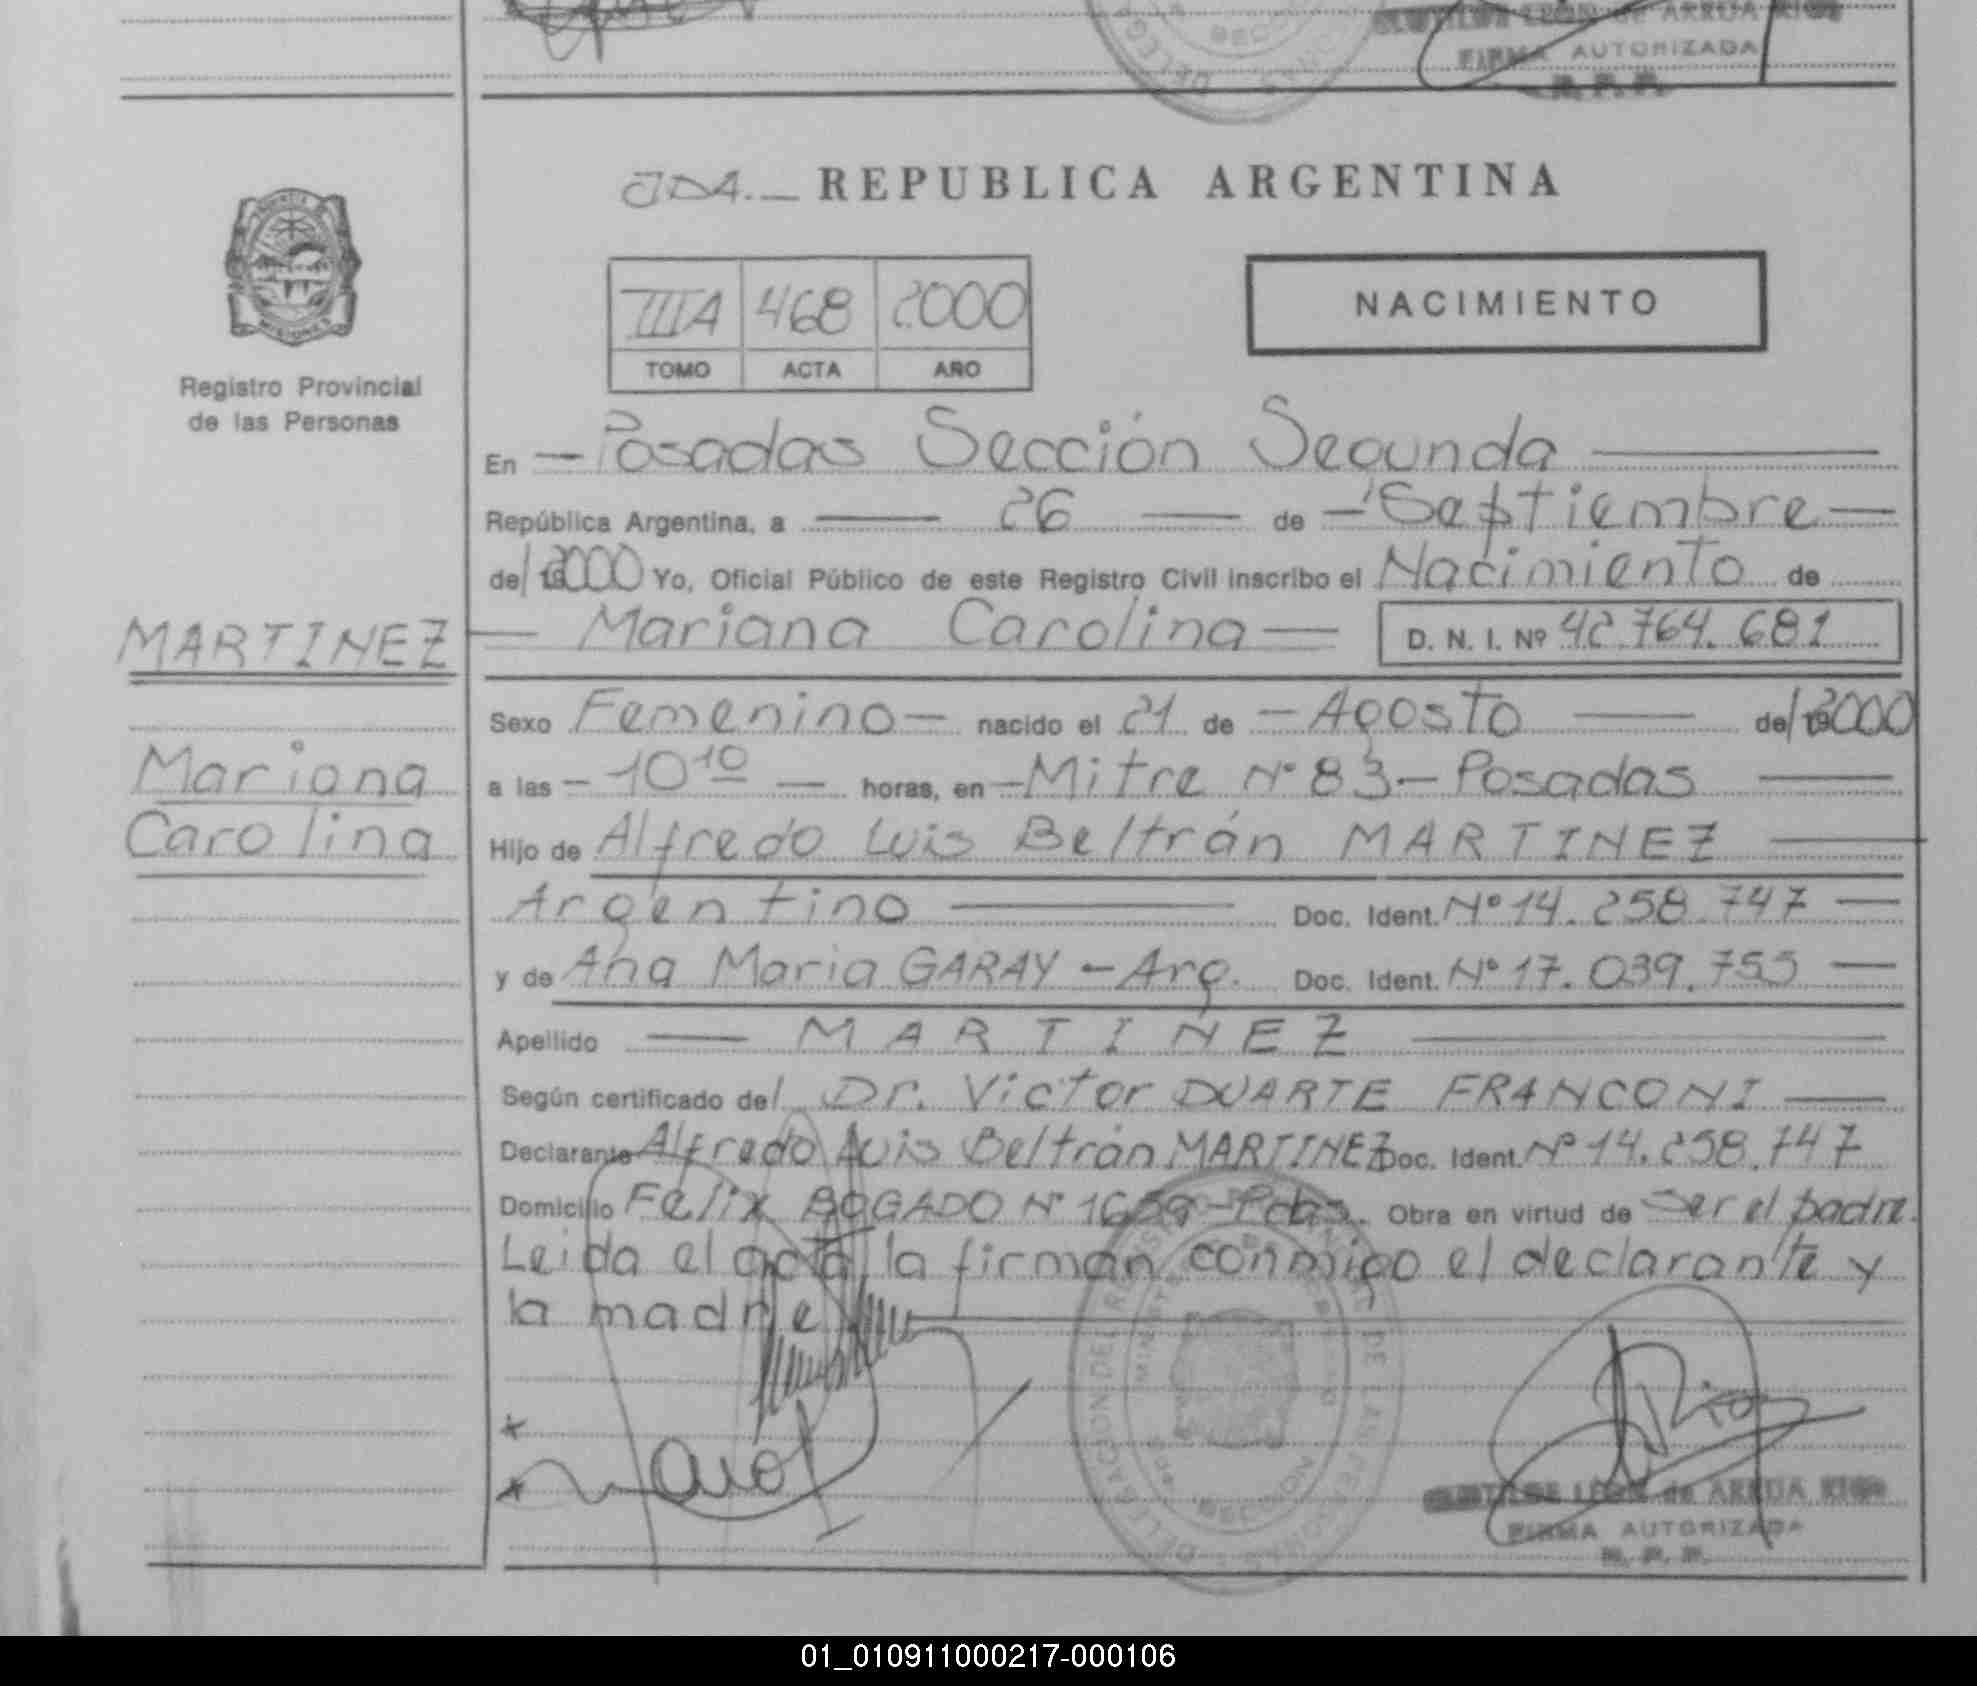 LEON de ARRUA RIOS
FIRMA AUTORIZADA
R. P. P.
REPUBLICA ARGENTINA
IIIA 468 2000
TOMO ACTA AÑO
NACIMIENTO
MISIONES
Registro Provincial
de las Personas
En — Posadas Sección Segunda —
República Argentina, a — 26 — de — Septiembre —
de 2000 Yo, Oficial Público de este Registro Civil inscribo el Nacimiento de
MARTINEZ
— Mariana Carolina — D. N. I. Nº 42.764.681
Sexo Femenino — nacido el 21 de — Agosto — de 2000
Mariana
Carolina
a las — 10 10 — horas, en — Mitre Nº 83 — Posadas —
Hijo de Alfredo Luis Beltrán MARTINEZ —
Argentino — Doc. Ident. Nº 14.258.747 —
y de Ana Maria GARAY — Arg. Doc. Ident. Nº 17.039.755 —
Apellido — MARTINEZ —
Según certificado del Dr. Victor DUARTE FRANCONI —
Declarante Alfredo Luis Beltrán MARTINEZ Doc. Ident. Nº 14.258.747
Domicilio Felix BOGADO Nº 1659 — Pdas. Obra en virtud de Ser el padre.
Leida el acta la firman conmigo el declarante y
la madre —
LEON de ARRUA RIOS
FIRMA AUTORIZADA
R. P. P.
01_010911000217-000106